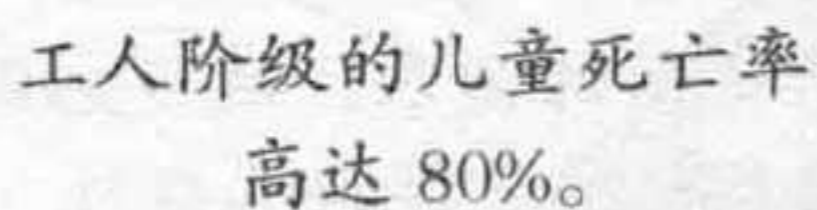 工人阶级的儿童死亡率
高达 80%。